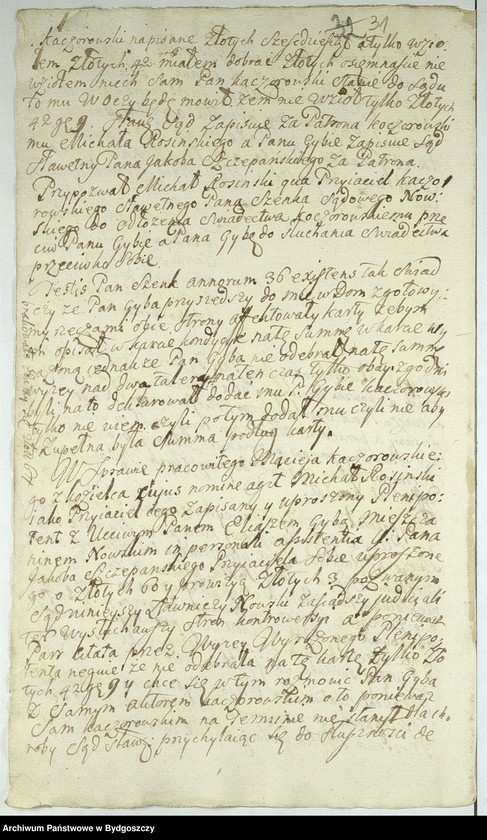 31
Kaczorowski napisane Złotych Szescdziesiąt a tylko wzio-
łem Złotych 42 miałem dobrac Złotych osiemnascie nie
wziołem niech sam Pan Kaczorowski stanie do Sądu
to mu w Oczy będę mowił żem nie wzioł tylko Złotych
42 gr 9. Sąd Zapisuie Za Patrona Kaczorowskie
mu Michała Rosinskiego a Panu Gybie Zapisuie Sąd
Sławetny Pana Jakoba Szczepanskiego Za Patrona.
Przypozwał Michał Rosinski qua Przyiaciel Kaczo
rowskiego Sławetnego Pana Szenka Sądowego Now:
skiego do odłożenia Swiadectwa Kaczorowskiemu prze
ciw Panu Gybie a Pana Gybę do słuchania Swiadectwa
przeciwko Sobie
Testis Pan Szenk annorum 36 existens tak Swiad
czy że Pan Gyba przyszedszy do mnie w Dom z gotowy:
mi rzeczami obie strony affentowały karty żebym
im opisał w karae kondycye na tę summę w karae wy
rażoną iednakże Pan Gyba nie odebrał na tę summę
wyzey nad dwa talery na ten czas tylko obay zgodni
byli na to deklarował dodac mu P. Gybie Kaczorowski
tylko nie wiem czyli potym dodał mu czyli nie aby
Zupełna była Summa podług karty.
W Sprawie pracowitego Macieja Kaczorowskie:
go z Kozielca cujus nomine agit Michał Rosinski
iako Przyiaciel iego Zapisany y uproszony Plenipo:
tent z Uccivym Panem Eliaszem Gybą Mieszcza
ninem Nowskim in personali assistentia Pana
Jakoba Szczepanskiego Przyiaciela Sobie uproszone
go o Złotych 60 y prowizyą Złotych 3 pozwanym
Sąd ninieyszy Ławniczy Nowski Zasiadszy judicjali
ter Wysłuchawszy Stron kontrowersyi a poniewasz
Pars Citata przez Wyzey Wyrażonego Plenipo:
tenta neguie że nie odebrała na tę kartę tylko Zło
tych 42 gr 9 y chce się w tym rozmowic Pan Gyba
z Samym autorem Kaczorowskim o to poniewasz
Sam Kaczorowski na Terminie nie stanął dla ch:
roby Sąd Sław: przychylaiąc się do słusznosci de
Archiwum Państwowe w Bydgoszczy